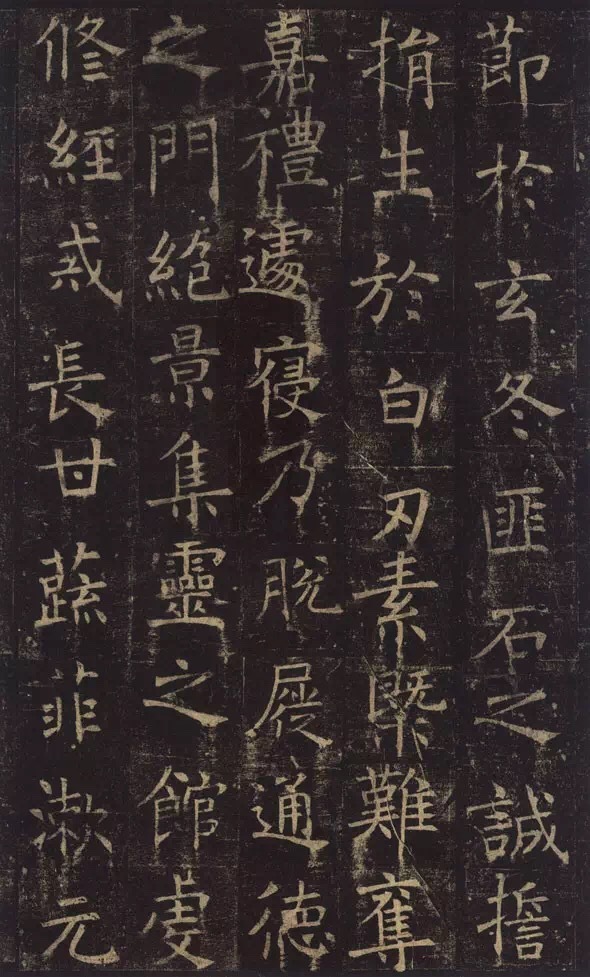 莭於玄冬匪石之誠擔
捐生於白刃素槩難奪
嘉禮遽寑乃脱屣通德
之門絶景集靈之館虔
修經戒長甘蔬菲漱元